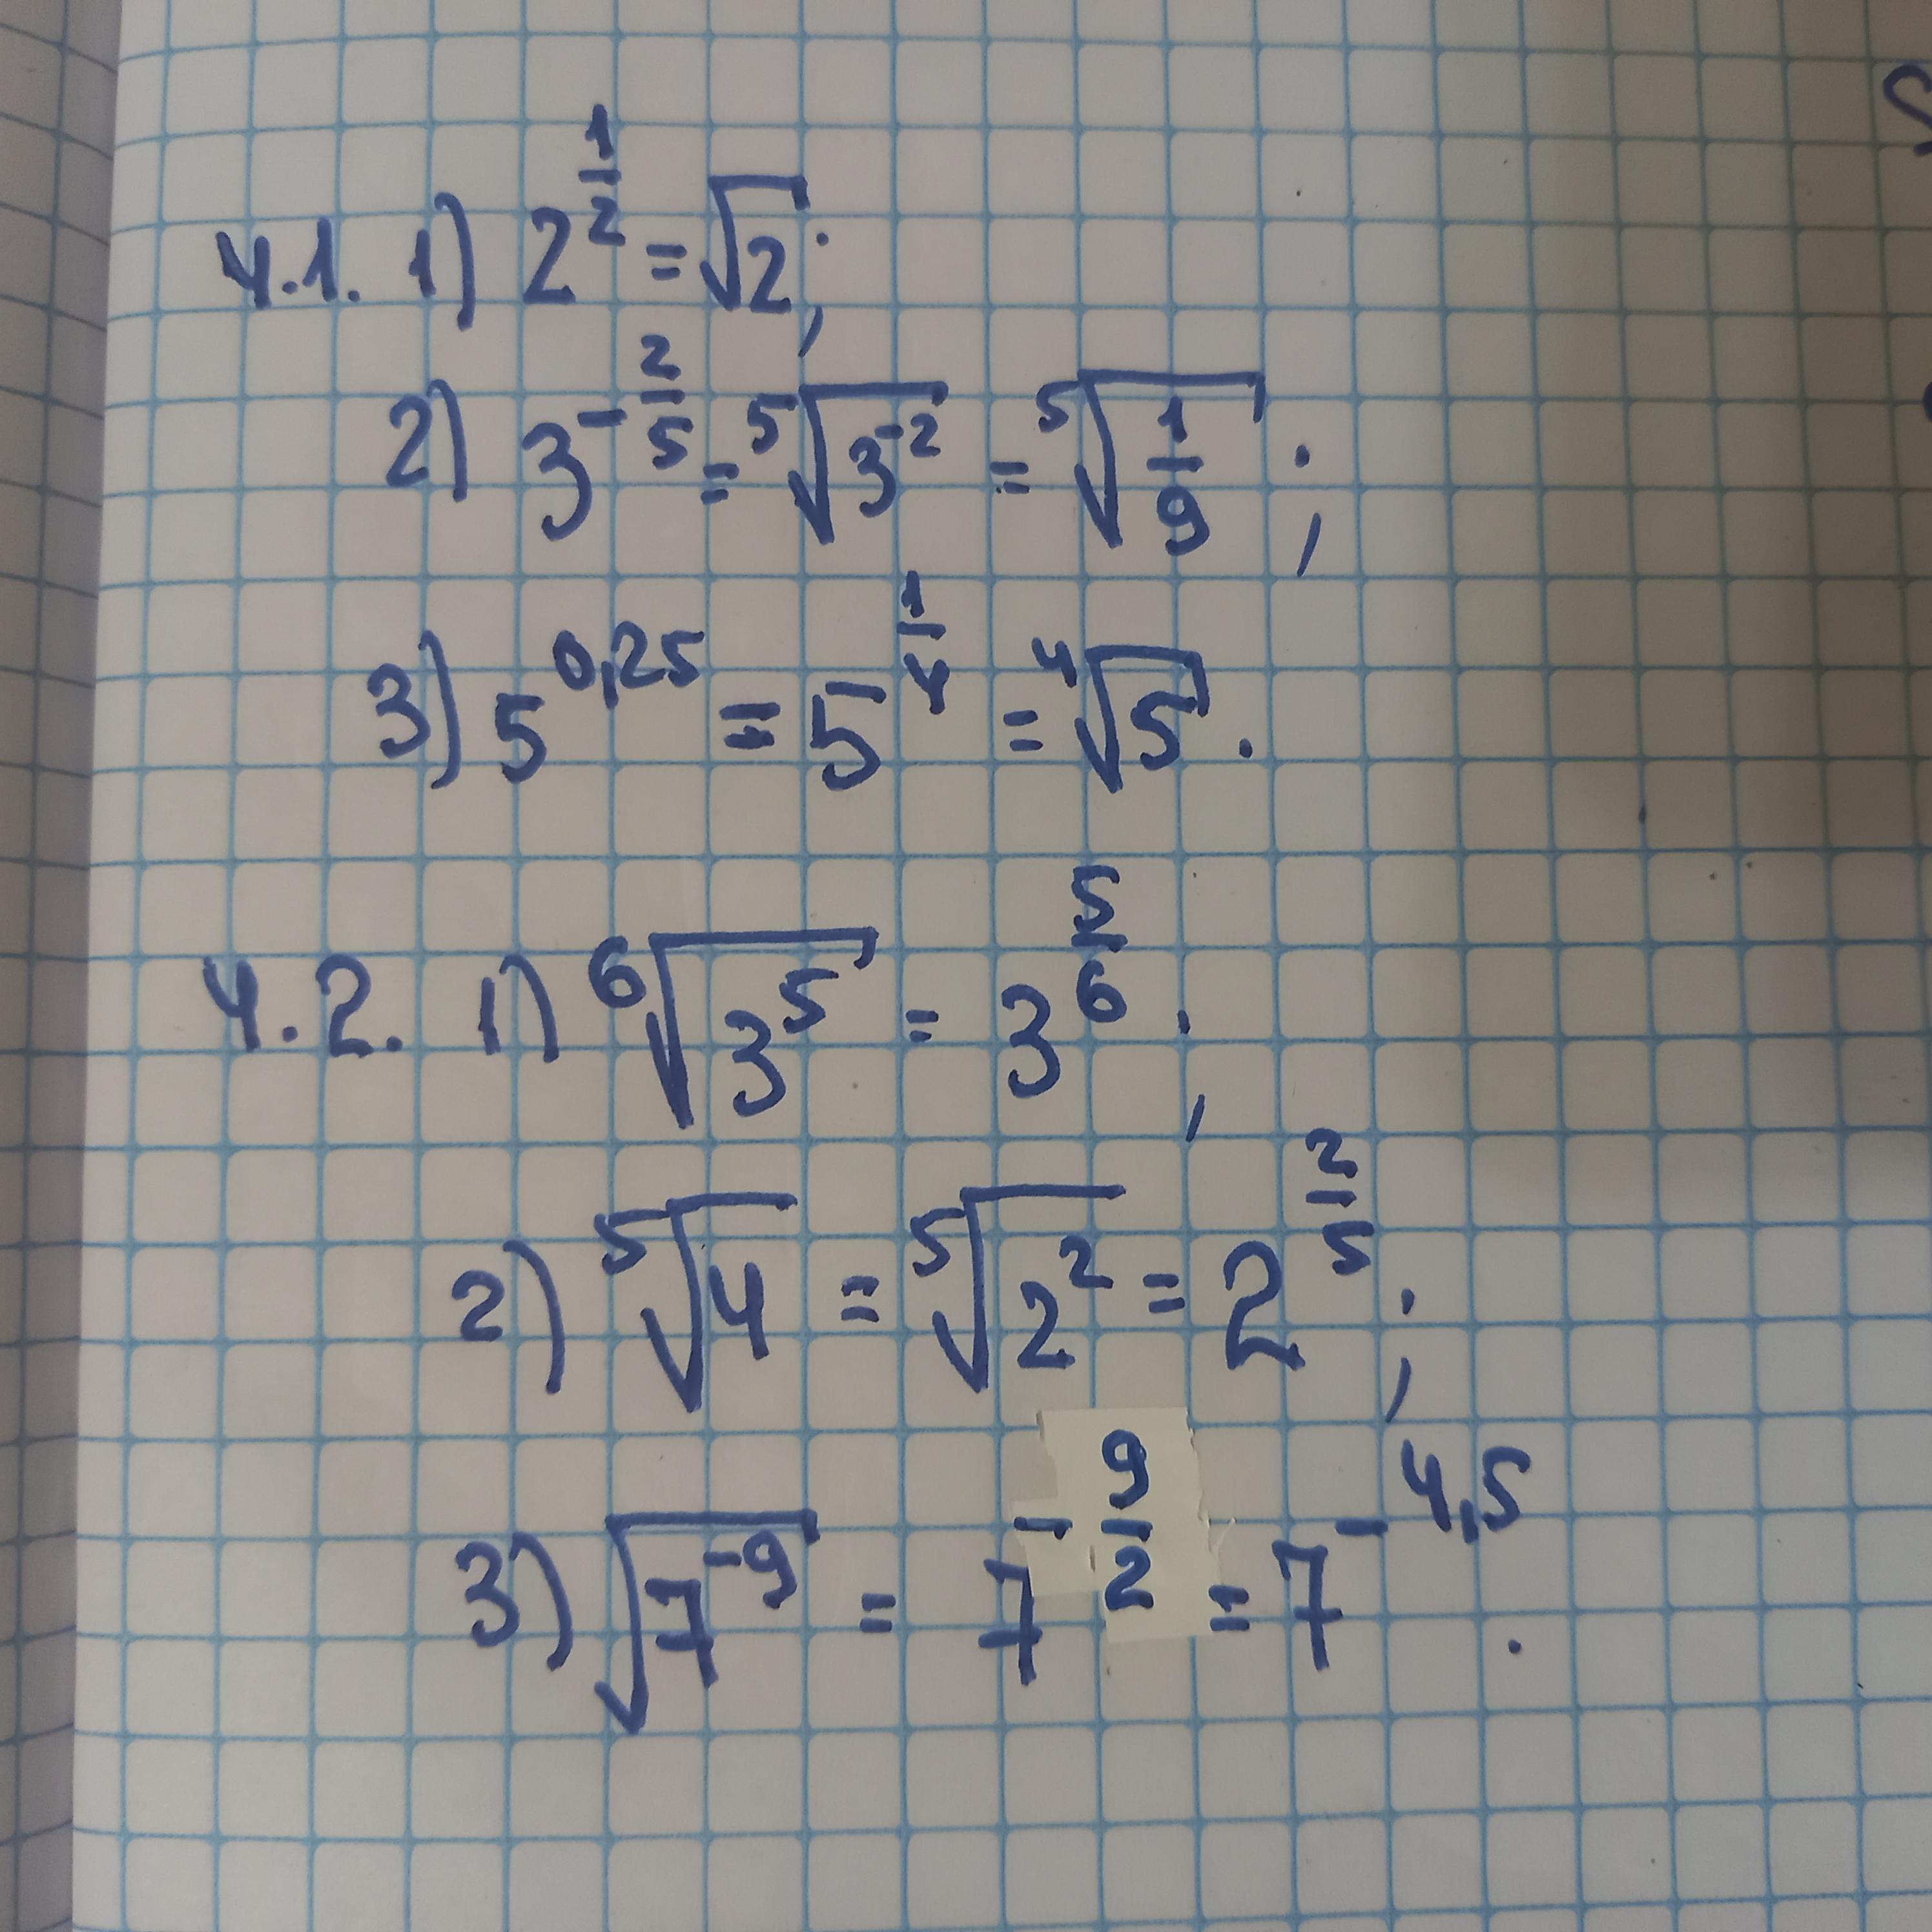 4.1. 1) 2^{\frac{1}{2}} = \sqrt{2};
2) 3^{-\frac{2}{5}} = \sqrt[5]{3^{-2}} = \sqrt[5]{\frac{1}{9}};
3) 5^{0,25} = 5^{\frac{1}{4}} = \sqrt[4]{5}.
4.2. 1) \sqrt[6]{3^5} = 3^{\frac{5}{6}};
2) \sqrt[5]{4} = \sqrt[5]{2^2} = 2^{\frac{2}{5}};
3) \sqrt{7^{-9}} = 7^{-\frac{9}{2}} = 7^{-4,5}.